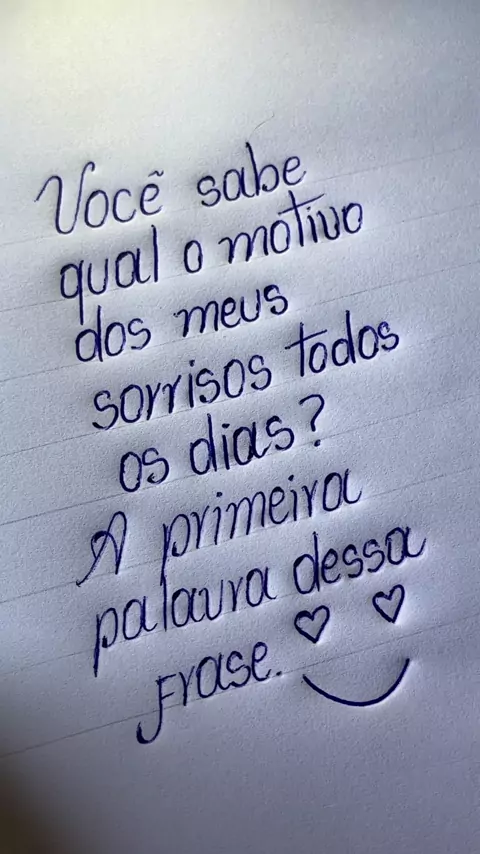 Você sabe
qual o motivo
dos meus
sorrisos todos
os dias?
A primeira
palavra dessa
frase.